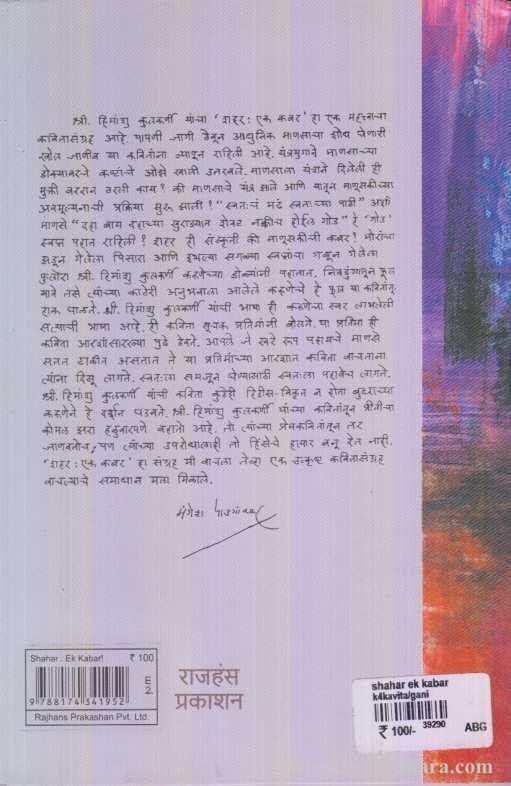 श्री. हिमांशु कुलकर्णी यांचा 'शहर : एक कबर' हा एक महत्त्वाचा
कवितासंग्रह आहे. पापणी जागी ठेवून आधुनिक माणसाचा शोध घेणारी
खोल जाणीव या कवितांना व्यापून राहिली आहे. यंत्रयुगाने माणसाच्या
डोक्यावरचे कष्टांचे ओझे खाली उतरवले. माणसाला यंत्राने दिलेली ही
मुक्ती वरदान ठरली काय? की माणसाचे यंत्र झाले आणि यातून माणूसकीच्या
अवमूल्यनाची प्रक्रिया सुरू झाली? "स्वतःचं मढं स्वतःच्या पाठी" अशी
माणसे "दहा बाय दहाच्या खुराड्यात शेवट नक्कीच होईल गोड" हे 'गोड'
स्वप्न पहात राहिली! शहर ही संस्कृती की माणूसकीची कबर? मोरांचा
झडून गेलेला पिसारा आणि इथल्या सगळ्या स्वप्नांचा गळून गेलेला
फुलोरा श्री. हिमांशु कुलकर्णी करुणेच्या डोळ्यांनी पहातात. निवडुंगातून फूल
यावे तसे त्यांच्या काटेरी अनुभवाला आलेले करुणेचे हे फूल या कवितांतून
हाक घालते. श्री. हिमांशु कुलकर्णी यांची भाषा ही करुणेचा स्वर लाभलेली
सत्याची भाषा आहे. ही कविता सूचक प्रतिमांनी बोलते. या प्रतिमा ही
कविता आरशासारख्या पुढे ठेवते. आपले जे खरे रूप पहायचे माणसे
सतत टाळीत असतात ते या प्रतिमांच्या आरशात कविता वाचताना
त्यांना दिसू लागते. स्वतःला समजून घेण्यासाठी स्वतःला पहावेच लागते.
श्री. हिमांशु कुलकर्णी यांची कविता कुठेही हिडीस-विकृत न होता बुद्धाच्या
करुणेने हे दर्शन घडवते. श्री. हिमांशु कुलकर्णी यांच्या कवितांतून प्रीतीचा
कोमल झरा हळुवारपणे वहातो आहे. तो त्यांच्या प्रेमकवितांतून तर
जाणवतोच, पण त्यांच्या उपरोधालाही तो हिंसेचे हत्यार बनू देत नाही.
'शहर : एक कबर' हा संग्रह मी वाचला तेव्हा एक उत्कृष्ट कवितासंग्रह
वाचल्याचे समाधान मला मिळाले.
मंगेश पाडगांवकर
Shahar : Ek Kabar! ₹ 100
E
2
9 788174 341952
Rajhans Prakashan Pvt. Ltd.
राजहंस
प्रकाशन
shahar ek kabar
k4kavita/gani
₹ 100/- 39290 ABG
ara.com